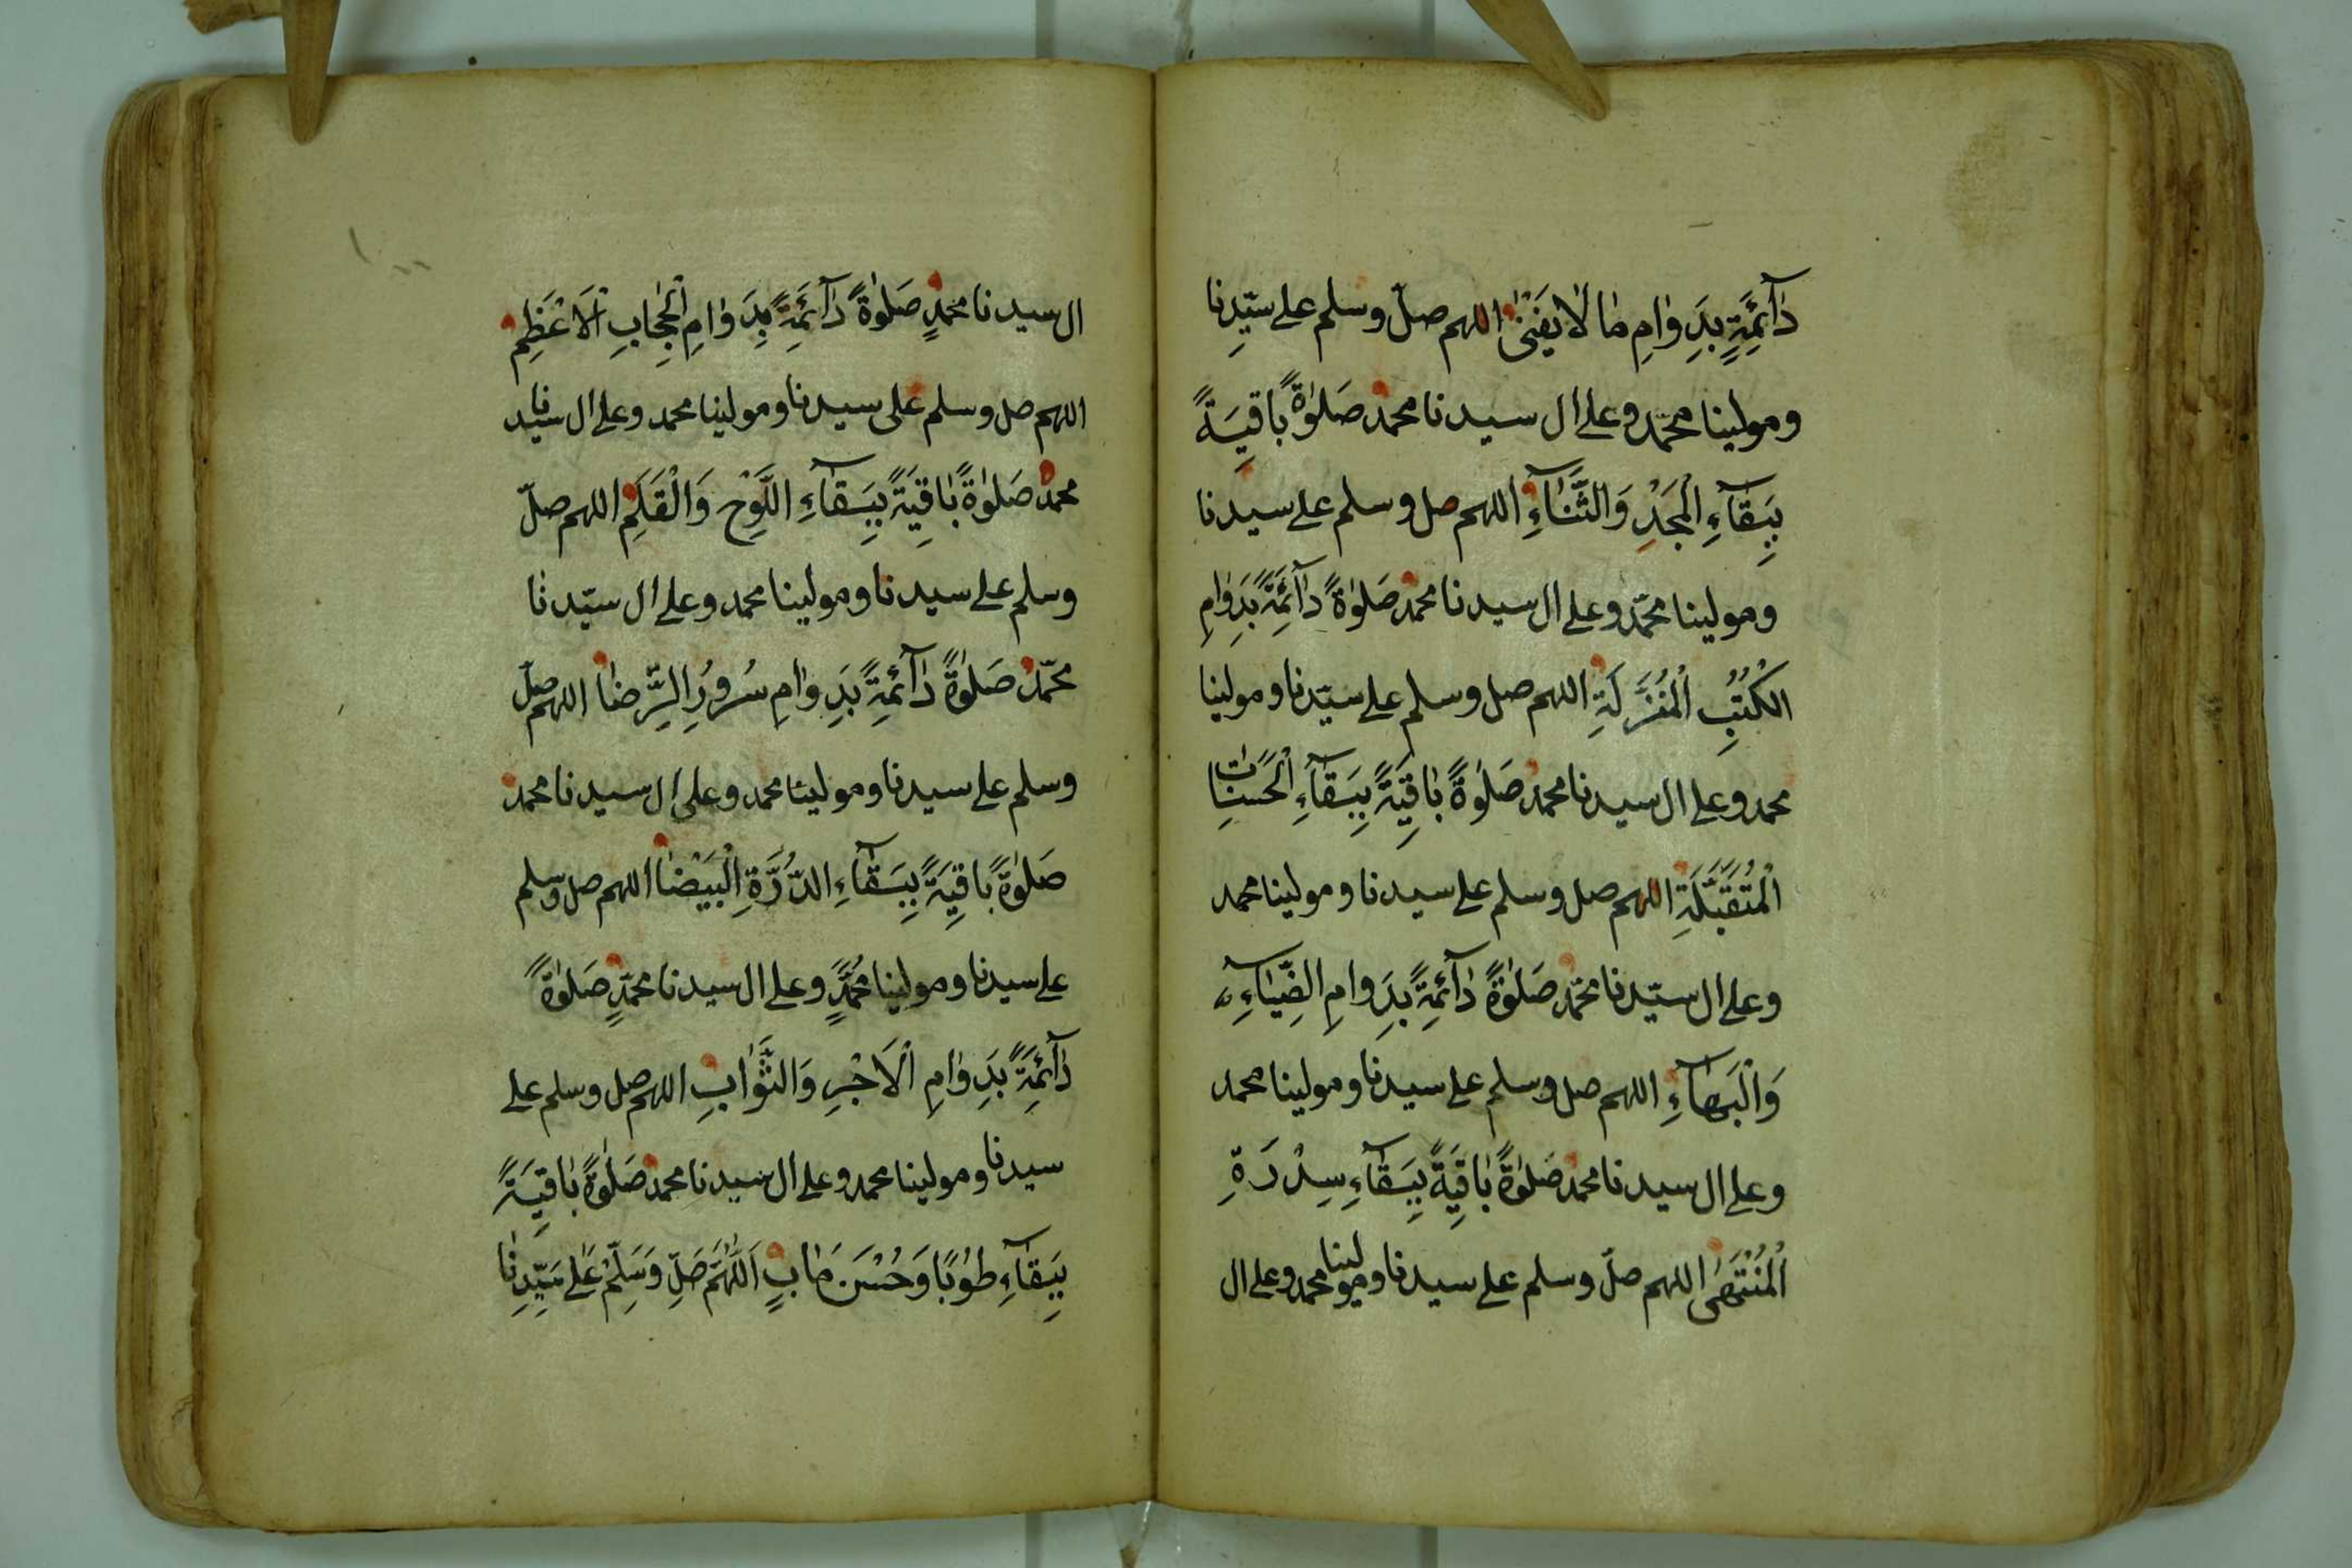 دٰآئِمَةٍ بِدَوٰامِ مٰا لٰا يَفْنىٰ اللهم صلّ وسلم على سيّدِنا
ومولينا محمّد وعلى ال سيدنا محمد صَلوٰةً بٰاقِيَةً
بِبَقآءِ الْمَجْدِ وَالثَّنٰآءِ اللهم صل وسلم على سيدنا
ومولينا محمّد وعلى ال سيدنا محمد صَلوٰةً دٰآئِمَةً بِدَوٰامِ
الكُتُبِ الْمُنْزَلَةِ اللهم صل وسلم على سيّدنا ومولينا
محمد وعلى ال سيدنا محمد صَلوٰةً بٰاقِيَةً بِبَقآءِ الْحَسَنٰاتِ
الْمُتَقَبَّلَةِ اللهم صل وسلم على سيدنا ومولينا محمد
وعلى ال سيّدنا محمّد صَلوٰةً دٰآئِمَةً بِدَوامِ الضِّيٰآءِ
وَالْبَهٰآءِ اللهم صل وسلم على سيدنا ومولينا محمد
وعلى ال سيدنا محمد صَلوٰةً بٰاقِيَةً بِبَقآءِ سِدْرَةِ
الْمُنْتَهىٰ اللهم صلّ وسلم على سيدنا ومولينا محمد وعلى ال
ال سيدنا محمدٍ صَلوٰةً دٰآئِمَةً بِدَوٰامِ الْحِجٰابِ الْاَعْظَمِ
اللهم صل وسلم على سيدنا ومولينا محمد وعلى ال سيدنا
محمد صَلوٰةً بٰاقِيَةً بِبَقآءِ اللَّوْحِ وَالْقَلَمِ اللهم صلّ
وسلم على سيدنا ومولينا محمد وعلى ال سيّدنا
محمّد صَلوٰةً دٰآئِمَةً بِدَوٰامِ سُرُورِ الرِّضٰا اللهم صلّ
وسلم على سيدنا ومولينا محمد وعلى ال سيدنا محمد
صَلوٰةً بٰاقِيَةً بِبَقآءِ الدُّرَّةِ الْبَيْضٰا اللهم صل وسلم
على سيدنا ومولينا محمّدٍ وعلى ال سيدنا محمّدٍ صَلوٰةً
دٰآئِمَةً بِدَوٰامِ الْاَجْرِ وَالثَّوٰابِ اللهم صل وسلم على
سيدنا ومولينا محمد وعلى ال سيدنا محمد صَلوٰةً بٰاقِيَةً
بِبَقآءِ طُوبًا وَحُسْنَ مَاٰبٍ اَللّٰهُمَّ صَلِّ وَسَلِّمْ عَلىٰ سَيِّدِنٰا